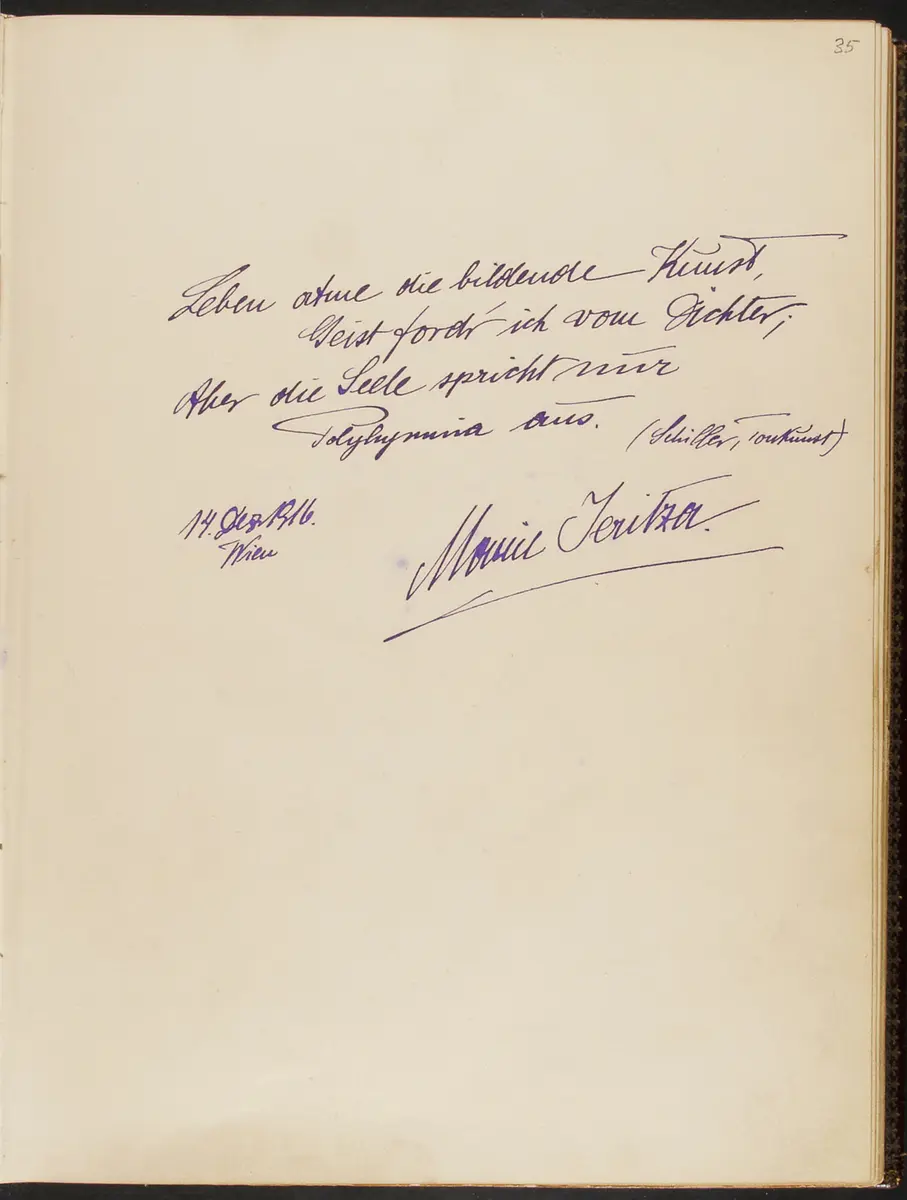 35
Leben atme die bildende Kunst,
Geist fordr' ich vom Dichter;
Aber die Seele spricht nur
Polyhymnia aus.
(Schiller, Tonkunst)
14. Dez. 1916.
Wien
Marie Jeritza.